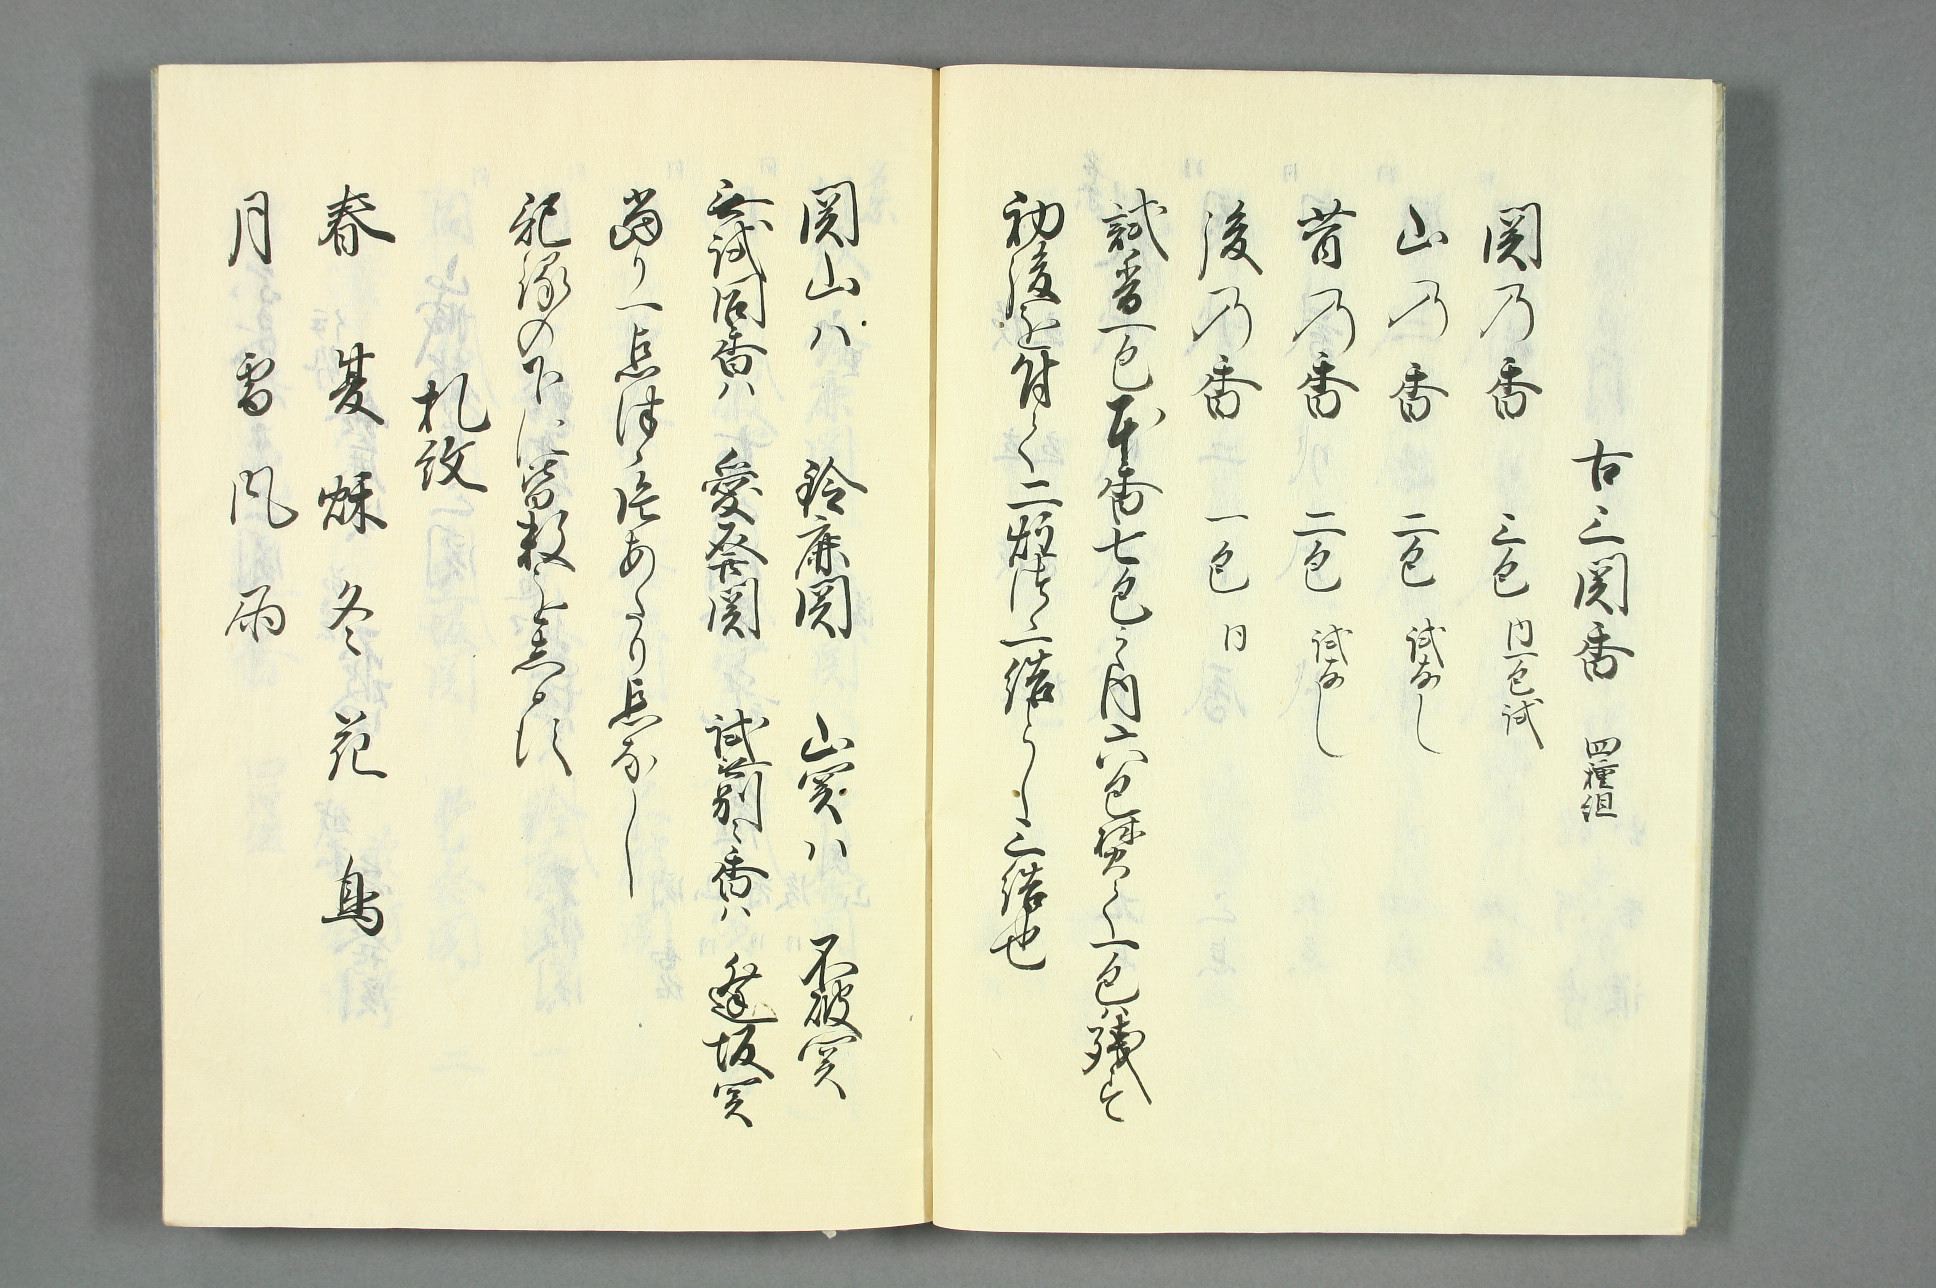 古三関香 四種組
関乃香 三包 内一包試
山乃香 二包 試なし
昔乃香 二包 試なし
後乃香 一包 同
試香一包本香七包之内六包焚て一包ハ残し
初後を付て二炷つゝ二結ひらし三結也
関山ハ 鈴鹿関 山関ハ 不破関
無試同香ハ 愛発関 試無別々香ハ 逢坂関
当り一点つゝ片あたり点なし
記録の下に皆
札紋
春 夏 秋 冬 花 鳥
月 雪 風 雨